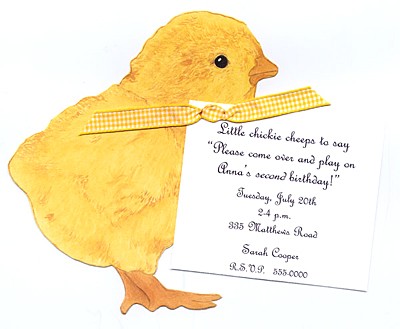 Little chickie cheeps to say
"Please come over and play on
Anna's second birthday!"
Tuesday, July 20th
2-4 p.m.
335 Matthews Road
Sarah Cooper
R.S.V.P. 555.0000